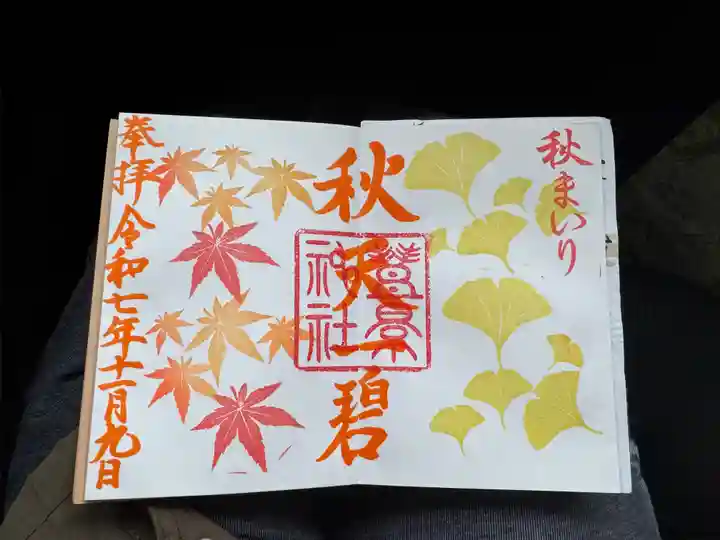 秋まいり
秋天一碧
神社
奉拝 令和七年十一月九日